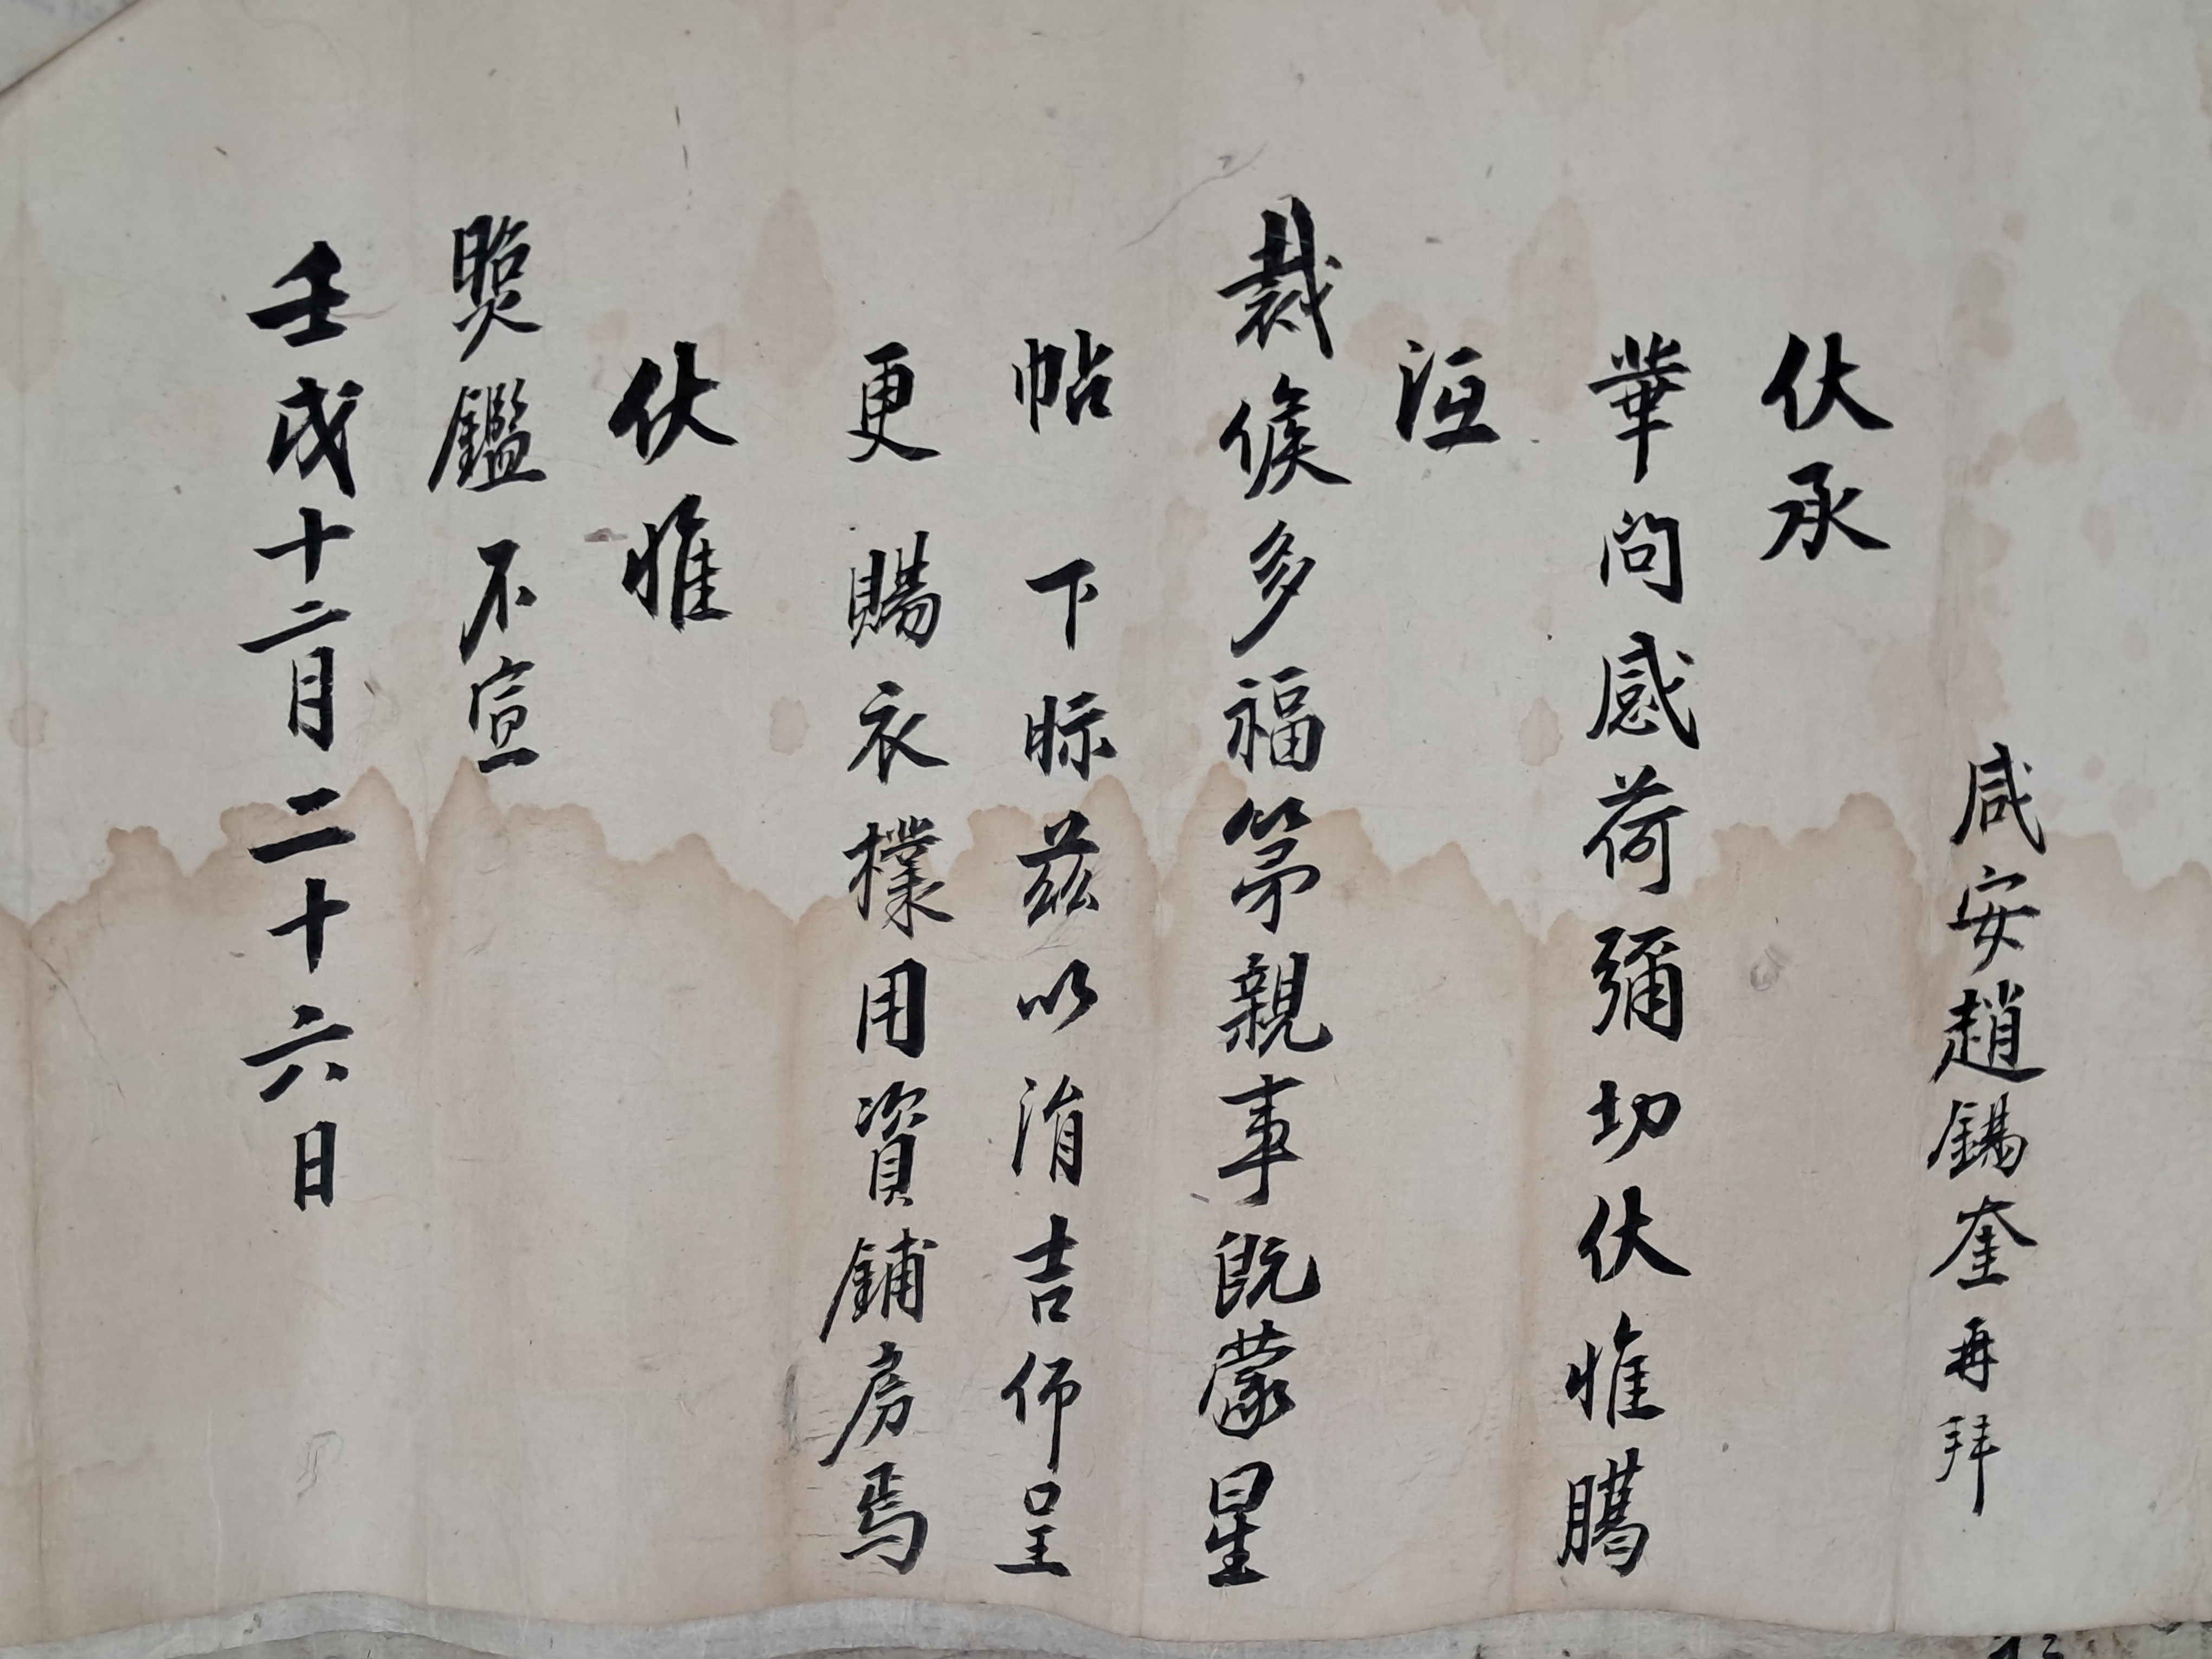 咸安趙錫奎再拜
伏承
華問感荷彌切伏惟臘
沍
裁候多福第親事旣蒙星
帖下眎玆以涓吉仰呈
更賜衣襆用資鋪房焉
伏惟
煕鑑不宣
壬戌十二月二十六日